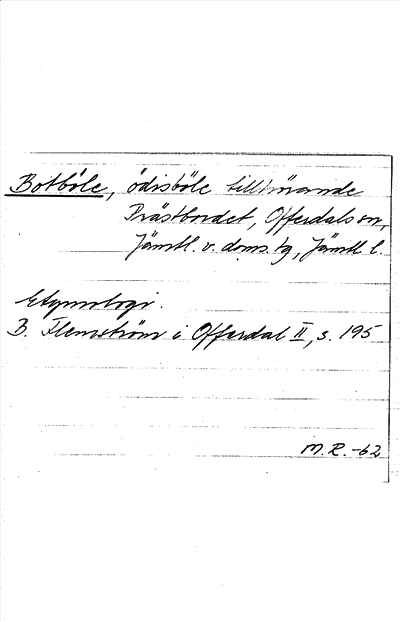 Botböle, ödisböle tillhörande
Prästbordet, Offerdals sn,
Jämtl. v. doms. tg, Jämtl. l.
Etymologi.
B. Flemström i Offerdal II, s. 195
M.R. -62